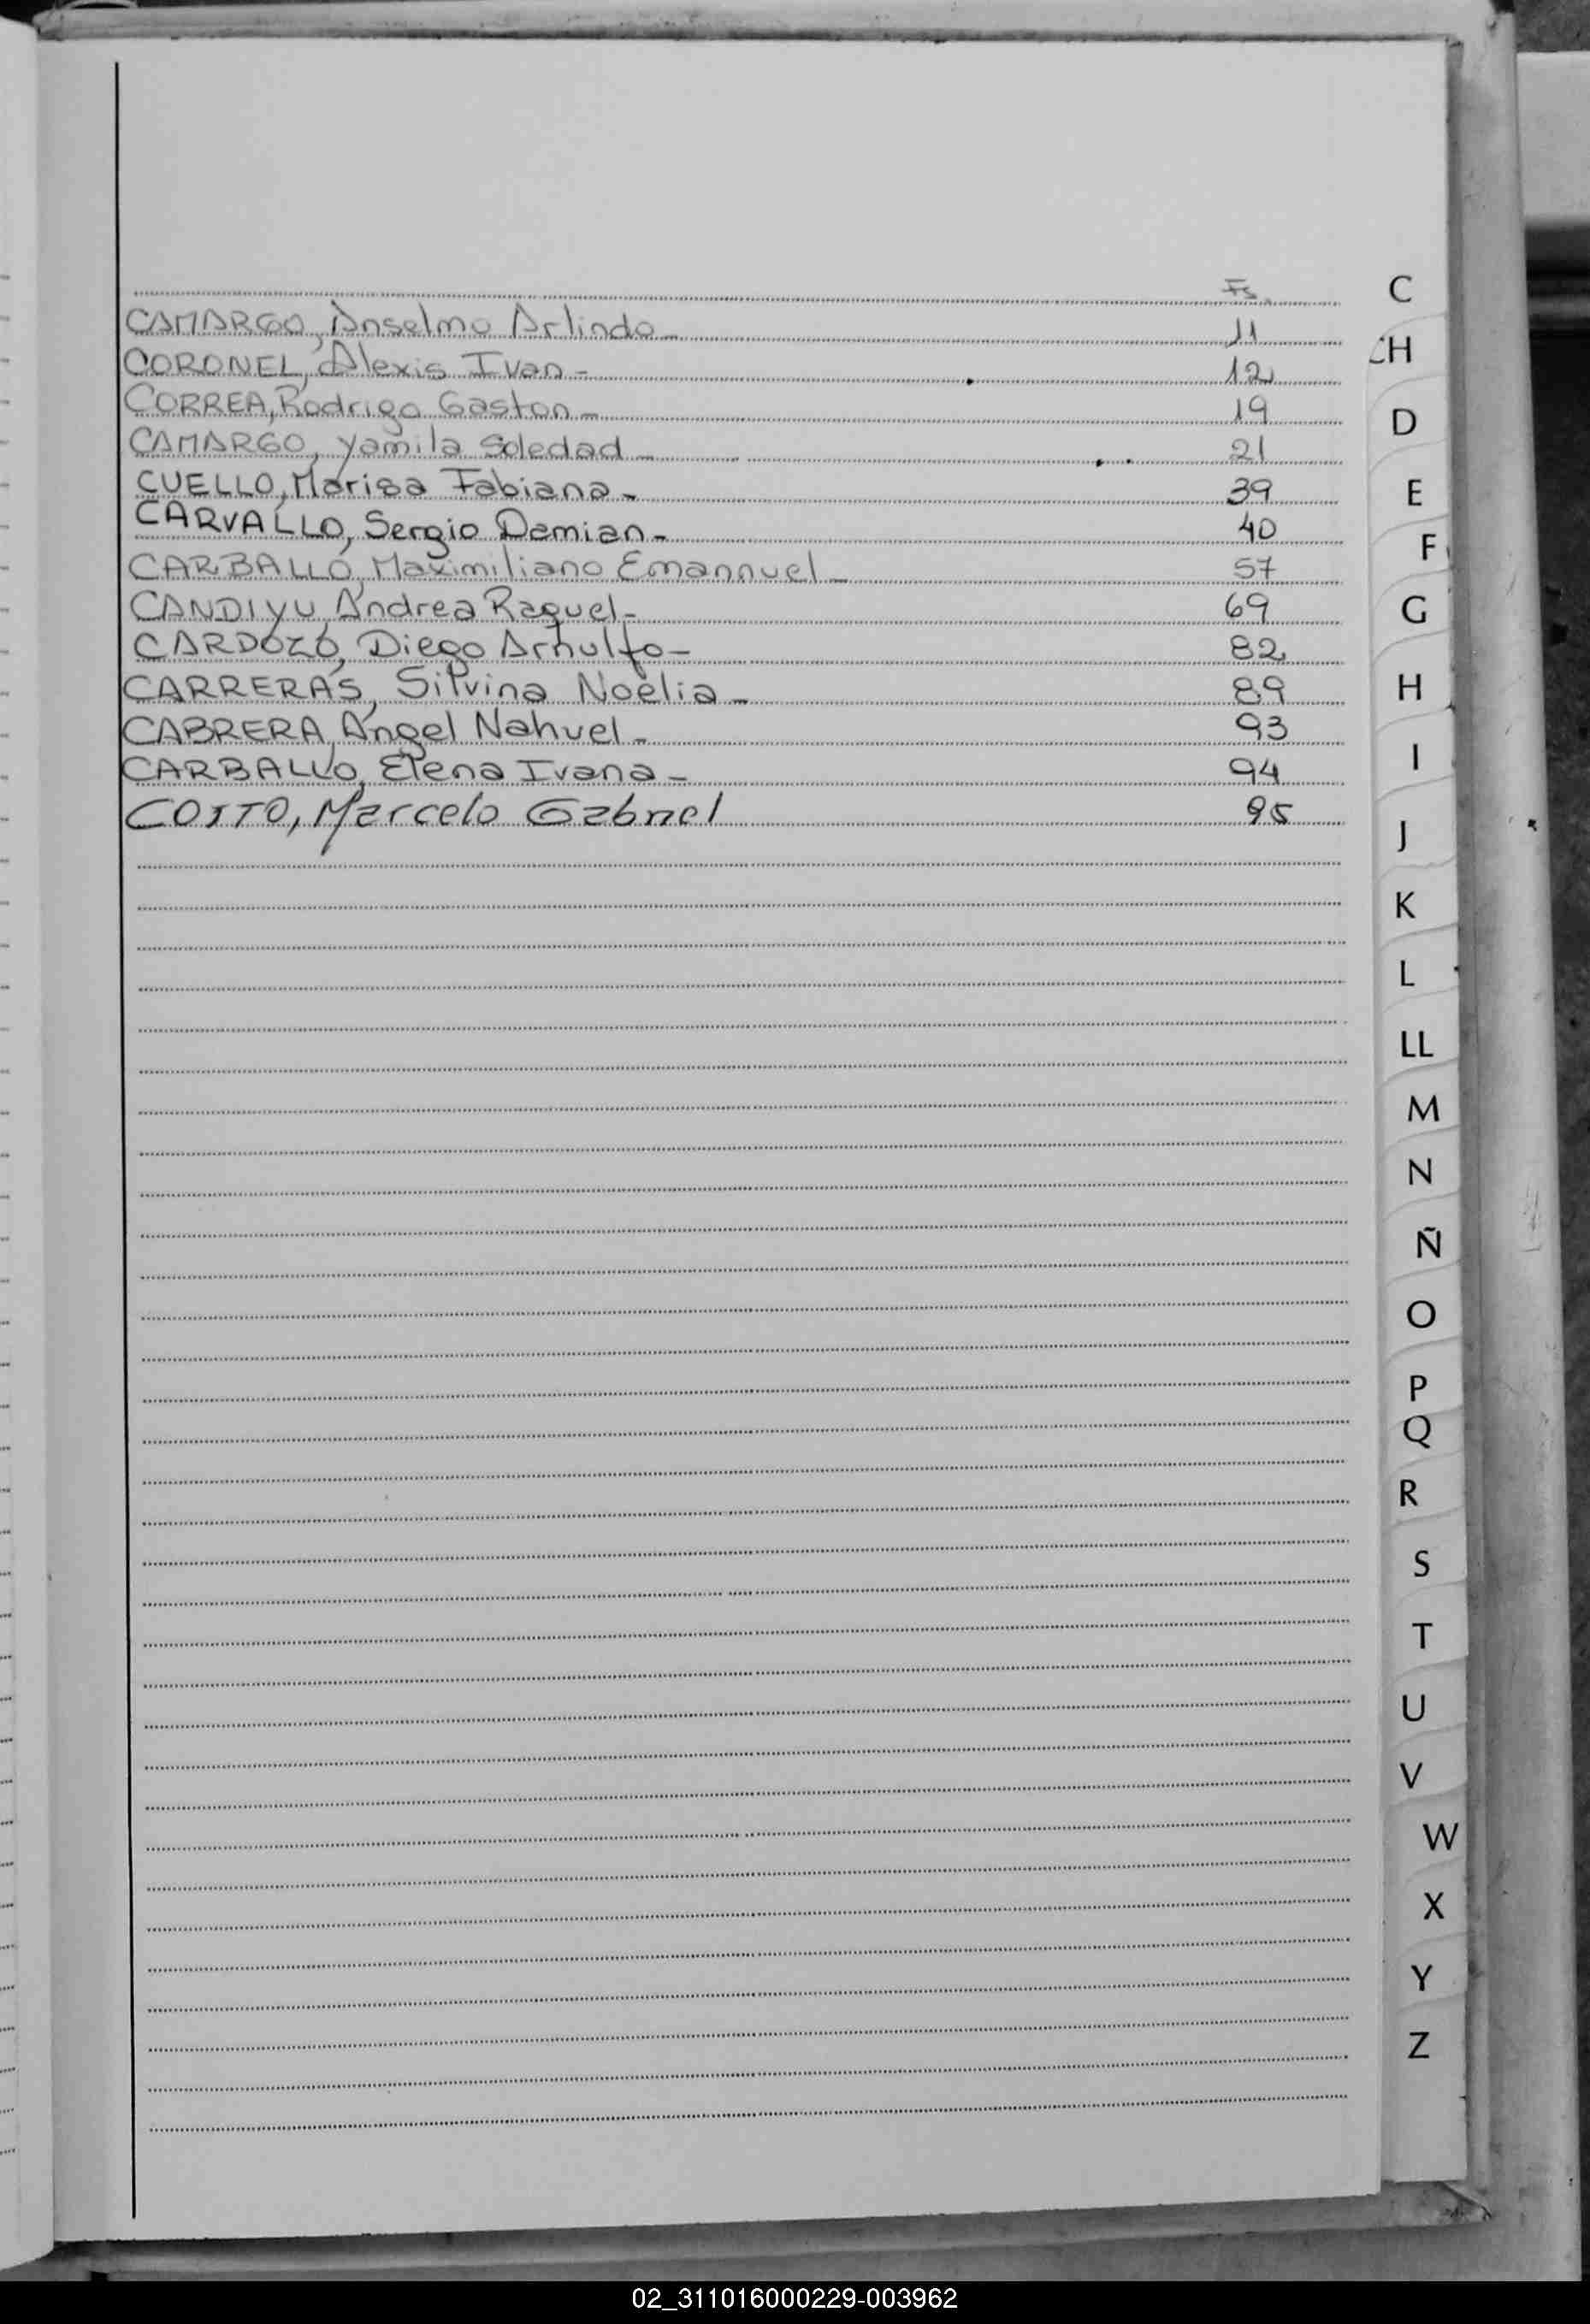 Fs.
CAMARGO, Anselmo Arlindo - 11
CORONEL, Alexis Ivan - 12
CORREA, Rodrigo Gaston - 19
CAMARGO, Yamila Soledad - 21
CUELLO, Marisa Fabiana - 39
CARVALLO, Sergio Damian - 40
CARBALLO, Maximiliano Emannuel - 57
CANDIYU, Andrea Raquel - 69
CARDOZO, Diego Arnulfo - 82
CARRERAS, Silvina Noelia - 89
CABRERA, Angel Nahuel - 93
CARBALLO, Elena Ivana - 94
Marcelo Gabriel 95
C
CH
D
E
F
G
H
I
J
K
L
LL
M
N
Ñ
O
P
Q
R
S
T
U
V
W
X
Y
Z
02_311016000229-003962